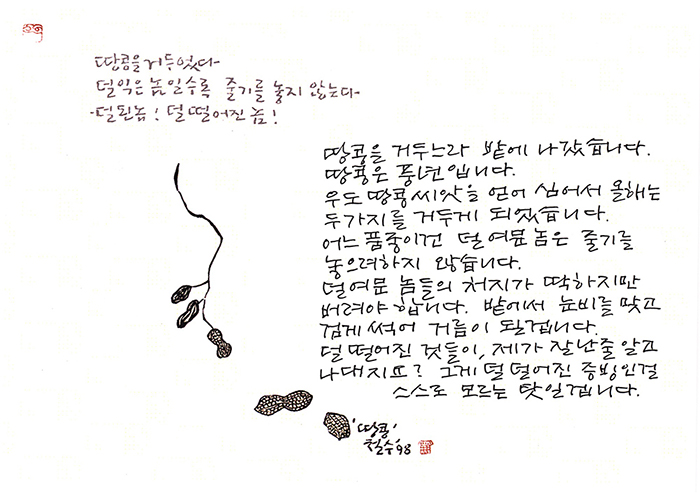 땅콩을 거두었다-
덜 익은 놈일수록 줄기를 놓지 않는다-
-덜된놈! 덜 떨어진 놈!
땅콩을 거두느라 밭에 나갔습니다.
땅콩은 풍년입니다.
우도 땅콩씨앗을 얻어 심어서 올해는
두가지를 거두게 되었습니다.
어느 품종이건 덜 여문 놈은 줄기를
놓으려하지 않습니다.
덜 여문 놈들의 처지가 딱하지만
버려야 합니다. 밭에서 눈비를 맞고
검게 썩어 거름이 될겁니다.
덜 떨어진 것들이, 제가 잘난줄 알고
나대지요? 그게 덜 떨어진 증빙인걸
스스로 모르는 탓일겁니다.
'땅콩'
철수 '98